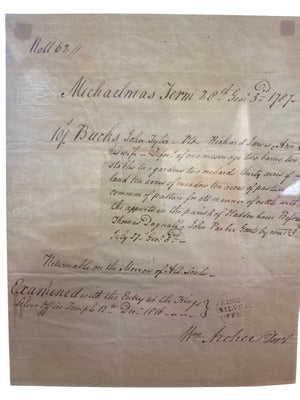 Roll 62//
Michaelmas Term 28th Geo: 3d 1787
Bucks John Tyler Plt Richard Ann
his wife Defts of one messuage two barns two
stables two gardens two orchards thirty acres of
land ten acres of meadow ten acres of pasture
common of pasture for all manner of cattle with
the appurts in the parish of Waddon
Thomas Dagnall & John Parker Gent by
July 27
Returnable on the Morrow of All Souls
Examined with the Entry at the Kings
Silver Office Temple 12th Decr 1816
KINGS
SILVER
OFFICE
Wm Archer